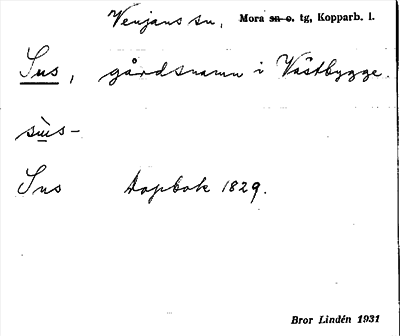 Venjans sn, Mora sn o. tg, Kopparb. l.
Sus, gårdsnamn i Västbygge.
sùs-
Sus Dopbok 1829.
Bror Lindén 1931